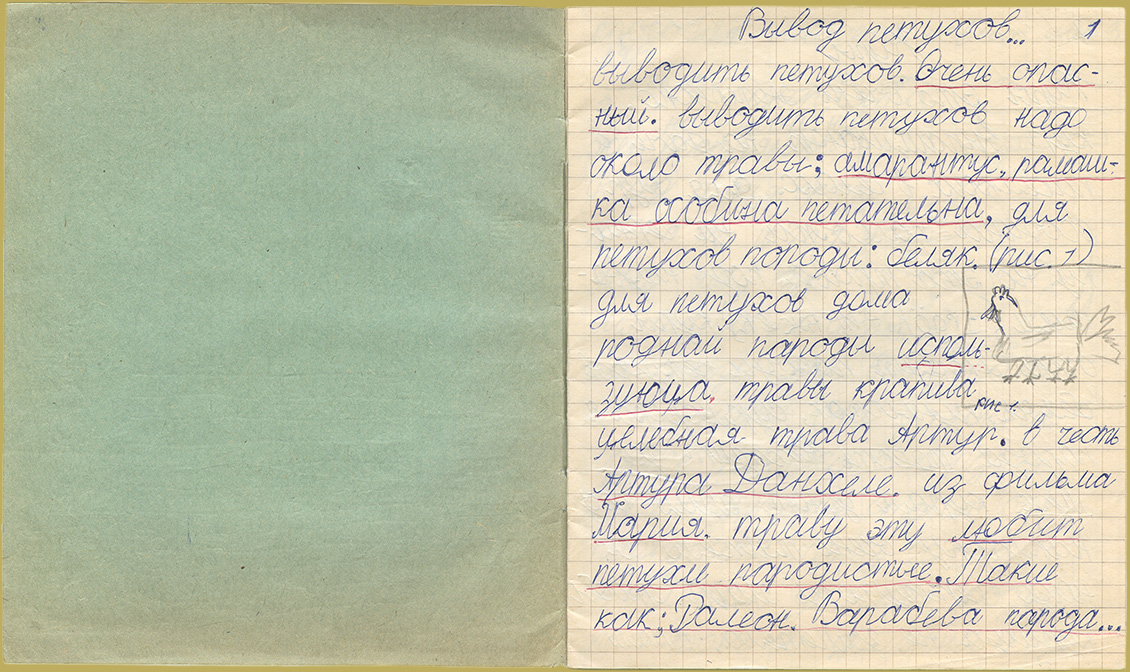 Вывод петухов... 1
выводить петухов. Очень опас-
ный. выводить петухов надо
около травы; амарантус, рамаш-
ка особина петательна, для
петухов породы: беляк. (рис. 1)
для петухов дома
роднай породы исполь-
зуюца, травы крапива
рис 1.
целебная трава Артур. в честь
Артура Данхеле. из фильма
Мария. траву эту любит
петухи пародистые. Такие
как; Далеон. Варабева парода...